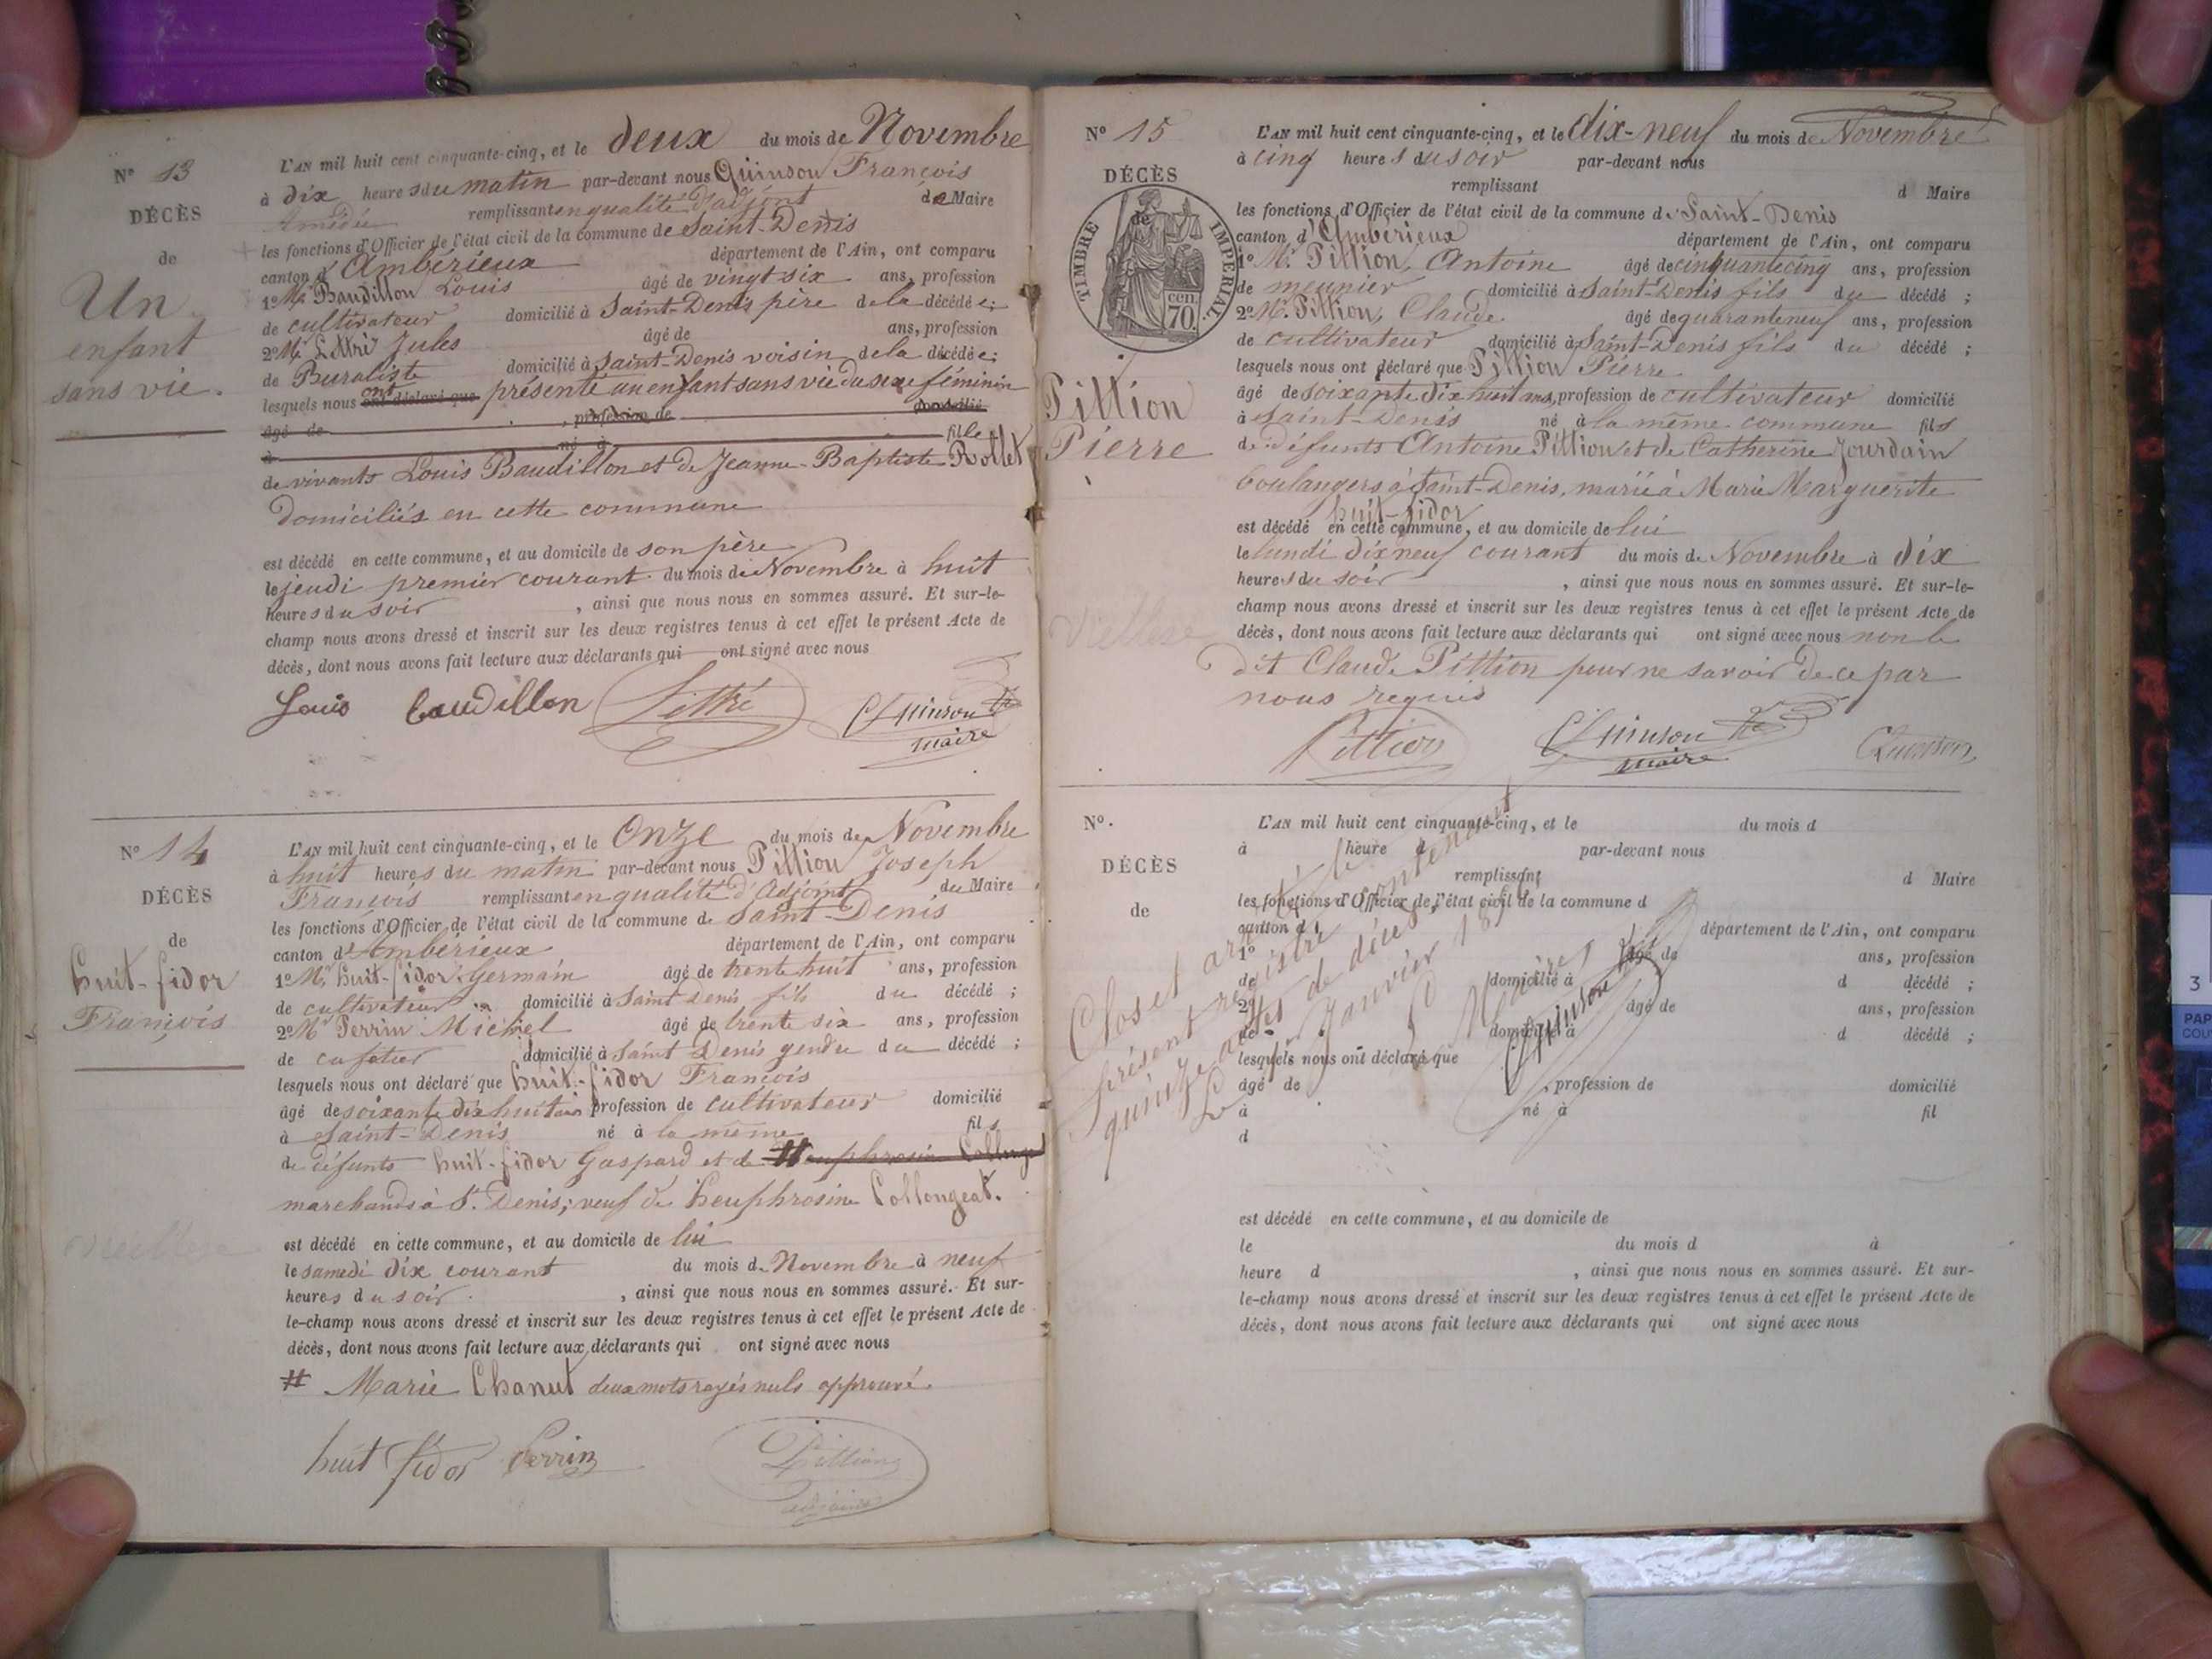 N° 13
DÉCÈS
de
Un
enfant
sans vie.
L'AN mil huit cent cinquante-cinq, et le deux du mois de Novembre
à dix heures du matin par-devant nous Quinson François
Amédée remplissant en qualité d'adjoint de Maire
les fonctions d'Officier de l'état civil de la commune de Saint-Denis
canton d'Ambérieux département de l'Ain, ont comparu
1° Mr Baudillon Louis âgé de vingt six ans, profession
de cultivateur domicilié à Saint-Denis père de la décédée;
2° Mr Littré Jules âgé de ans, profession
de Buraliste domicilié à Saint-Denis voisin de la décédée;
lesquels nous ont déclaré que ont présenté un enfant sans vie du sexe féminin
âgé de , profession de domicilié
à né à fille
de vivants Louis Baudillon et de Jeanne-Baptiste Rollet
domiciliés en cette commune
est décédé en cette commune, et au domicile de son père
le jeudi premier courant du mois de Novembre à huit
heures du soir , ainsi que nous nous en sommes assuré. Et sur-le-
champ nous avons dressé et inscrit sur les deux registres tenus à cet effet le présent Acte de
décès, dont nous avons fait lecture aux déclarants qui ont signé avec nous
Louis baudillon Littré Quinson
maire
N° 14
DÉCÈS
de
huit-fidor
François
Vieillesse
L'AN mil huit cent cinquante-cinq, et le Onze du mois de Novembre
à huit heures du matin par-devant nous Pittion Joseph
François remplissant en qualité d'Adjoint du Maire
les fonctions d'Officier de l'état civil de la commune de Saint-Denis
canton d'Ambérieux département de l'Ain, ont comparu
1° Mr huit-fidor Germain âgé de trente huit ans, profession
de cultivateur domicilié à Saint Denis fils du décédé;
2° Mr Perrin Michel âgé de trente six ans, profession
de cafetier domicilié à Saint Denis gendre du décédé;
lesquels nous ont déclaré que huit-fidor François
âgé de soixante dix huit ans profession de cultivateur domicilié
à Saint-Denis né à la même fils
de défunts huit-fidor Gaspard et de # euphrosine Collonge
marchands à St. Denis; veuf de heuphrosine Collongeat.
est décédé en cette commune, et au domicile de lui
le samedi dix courant du mois de Novembre à neuf
heures du soir , ainsi que nous nous en sommes assuré. Et sur-
le-champ nous avons dressé et inscrit sur les deux registres tenus à cet effet le présent Acte de
décès, dont nous avons fait lecture aux déclarants qui ont signé avec nous
# Marie Chanut deux mots rayés nuls approuvé.
huit fidor Perrin Pittion
adjoint
N° 15
DÉCÈS
de
TIMBRE IMPÉRIAL
cen.
70.
Pittion
Pierre
Viellesse
L'AN mil huit cent cinquante-cinq, et le dix-neuf du mois de Novembre
à cinq heures du soir par-devant nous
remplissant d Maire
les fonctions d'Officier de l'état civil de la commune de Saint-Denis
canton d'Ambérieux département de l'Ain, ont comparu
1° Mr Pittion, Antoine âgé de cinquante cinq ans, profession
de meunier domicilié à Saint-Denis fils du décédé;
2° Mr. Pittion, Claude âgé de quarante neuf ans, profession
de cultivateur domicilié à Saint-Denis fils du décédé;
lesquels nous ont déclaré que Pittion Pierre
âgé de soixante dix huit ans, profession de cultivateur domicilié
à Saint-Denis né à la même commune fils
de défunts Antoine Pittion et de Catherine Jourdain
boulangers à Saint-Denis, marié à Marie Marguerite
huit-fidor
est décédé en cette commune, et au domicile de lui
le lundi dix neuf courant du mois de Novembre à dix
heures du soir , ainsi que nous nous en sommes assuré. Et sur-le-
champ nous avons dressé et inscrit sur les deux registres tenus à cet effet le présent Acte de
décès, dont nous avons fait lecture aux déclarants qui ont signé avec nous non le
dit Claude Pittion pour ne savoir de ce par
nous requis
Pittion Quinson
maire
N°.
DÉCÈS
de
L'AN mil huit cent cinquante-cinq, et le du mois d
à heure d par-devant nous
remplissant d Maire
les fonctions d'Officier de l'état civil de la commune d
canton d département de l'Ain, ont comparu
1° âgé de ans, profession
de domicilié à d décédé;
2° âgé de ans, profession
de domicilié à d décédé;
lesquels nous ont déclaré que
âgé de , profession de domicilié
à né à fil
d
Clos et arrêté le
présent registre contenant
quinze actes de décès
Le 1er Janvier
Le Maire
Quinson
est décédé en cette commune, et au domicile de
le du mois d à
heure d , ainsi que nous nous en sommes assuré. Et sur-
le-champ nous avons dressé et inscrit sur les deux registres tenus à cet effet le présent Acte de
décès, dont nous avons fait lecture aux déclarants qui ont signé avec nous
3
PAP
COU